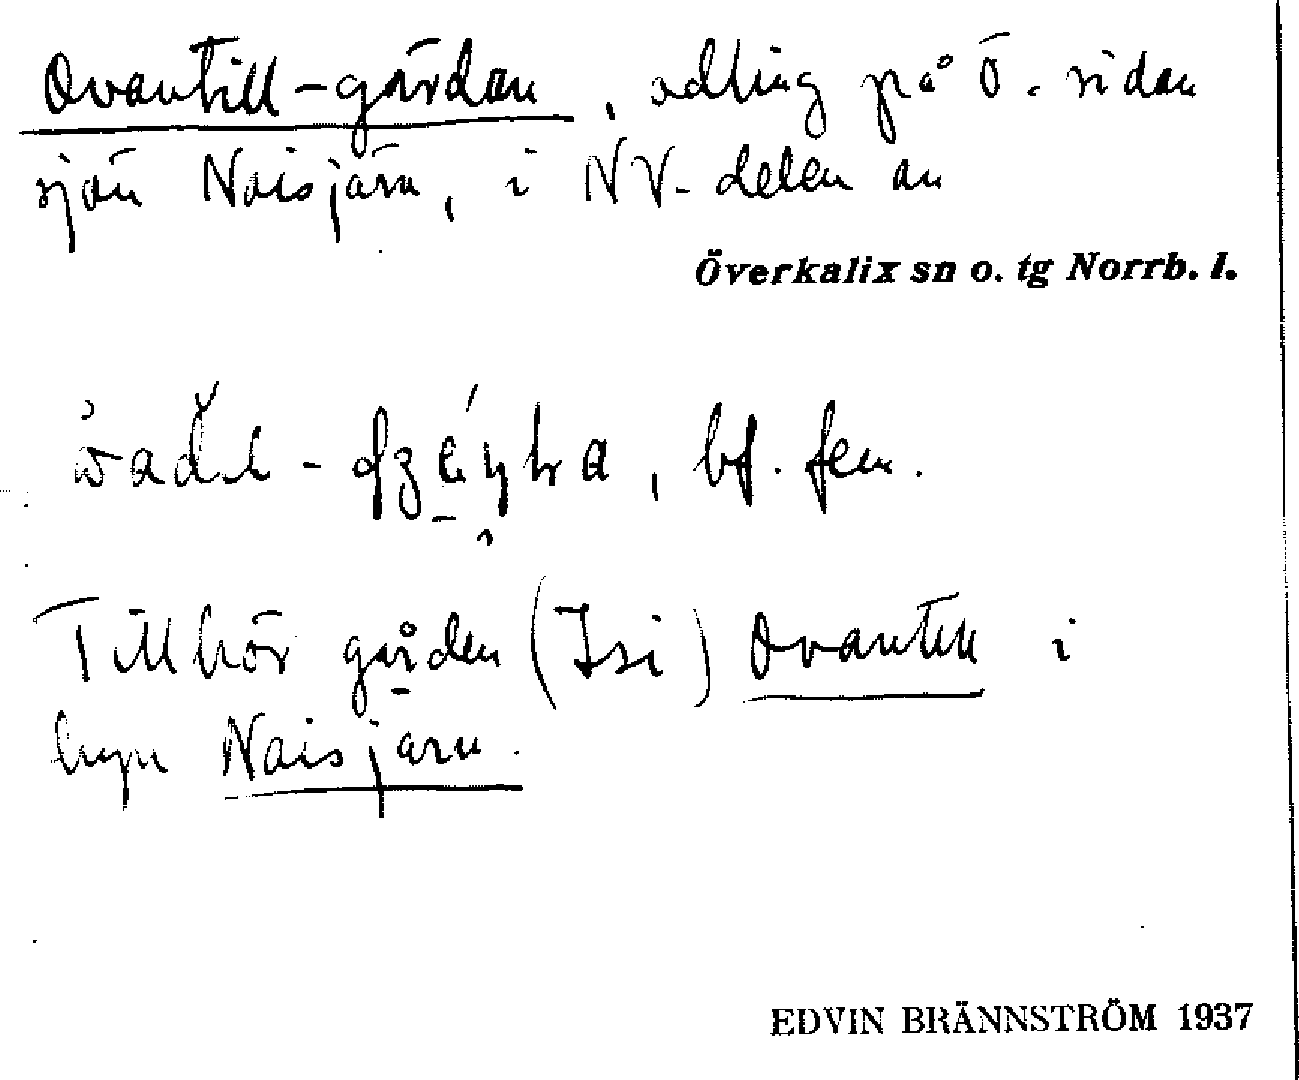 Ovantill-gärdan, odling på Ö. sidan
sjön Naisjärn, i NV-delen av
Överkalix sn o. tg Norrb. l.
bf. fem.
Tillhör gården (Isi) Ovantill i
byn Naisjärn.
EDVIN BRÄNNSTRÖM 1937